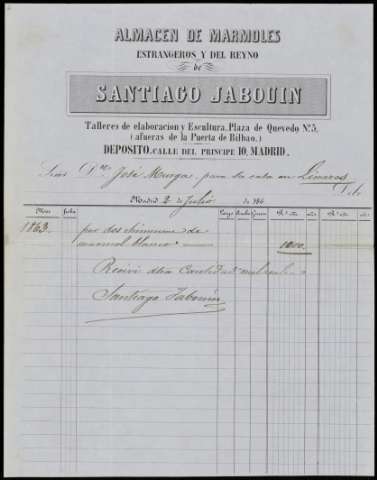 ALMACEN DE MARMOLES
ESTRANGEROS Y DEL REYNO
de
SANTIAGO JABOUIN
Talleres de elaboracion y Escultura, Plaza de Quevedo Nº 5,
(afueras de la Puerta de Bilbao.)
DEPOSITO, CALLE DEL PRINCIPE 10, MADRID.
José Murga, para su casa en Linares
Debe
Madrid 2 de Julio de 186
Meses fecha Largo Ancho Grueso Rs. vn. cts. Rs. vn. cts.
1863 por dos chimeneas de
marmol blanco 1000
Recivi dha Cantidad
Santiago Jabouin